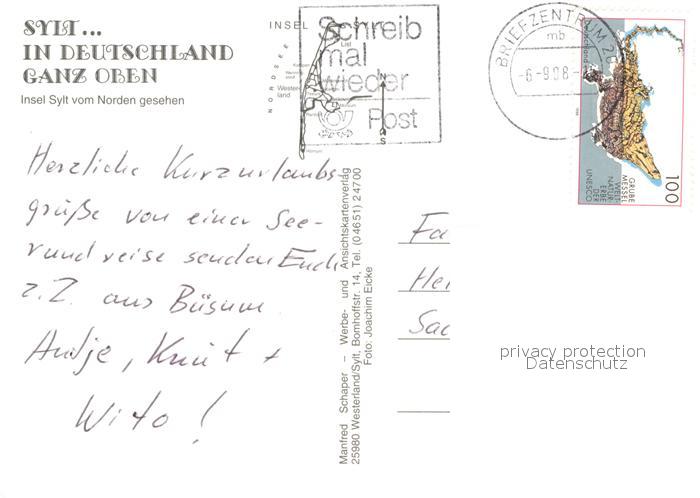 SYLT...
IN DEUTSCHLAND
GANZ OBEN
Insel Sylt vom Norden gesehen
INSEL SYLT
NORDSEE
List
Wester-
land
N
S
Schreib
mal
wieder
Post
BRIEFZENTRUM 2
mb
-6-9.98-
Deutschland
GRUBE
MESSEL
WELT
NATUR-
ERBE
DER
UNESCO
100
Herzliche Kurzurlaubs-
grüße von einer See-
rundreise senden Euch
z.Z. aus Büsum
Antje, Knut +
Wito!
Manfred Schaper – Werbe- und Ansichtskartenverlag
25980 Westerland/Sylt, Bomhoffstr. 14, Tel. (04651) 24700
Foto: Joachim Eicke
Fa
Hei
Sac
privacy protection
Datenschutz